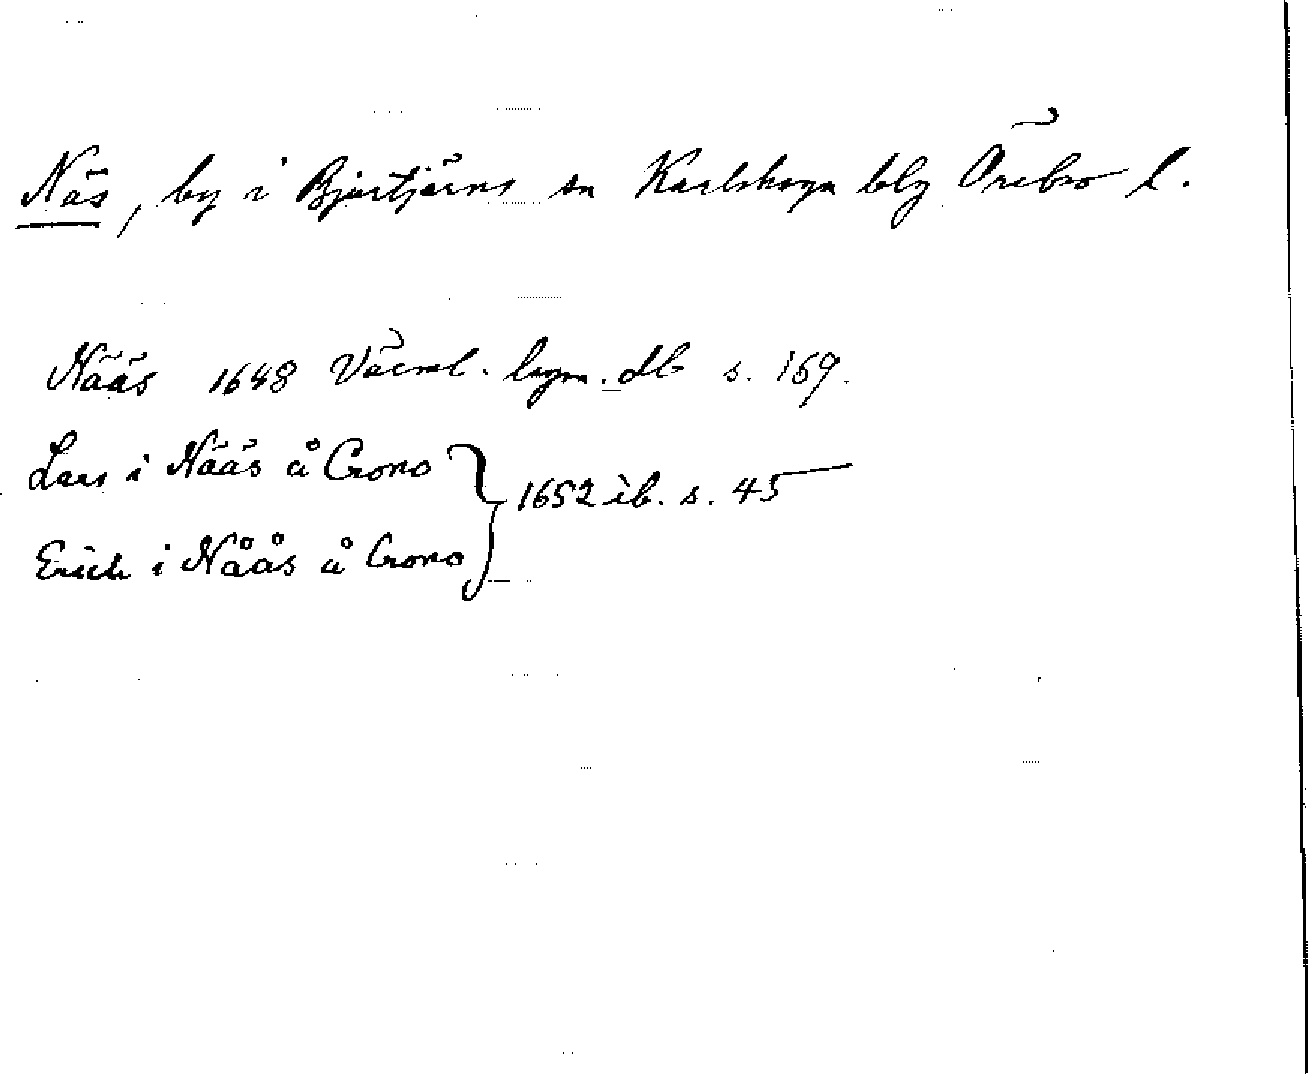 Näs, by i Bjurtjärns sn Karlskoga blg Örebro l.
Nääs 1648 Värml. lagm. db s. 169.
Lars i Nääs å Crono } 1652 ib. s. 45
Erich i Nåås å Crono